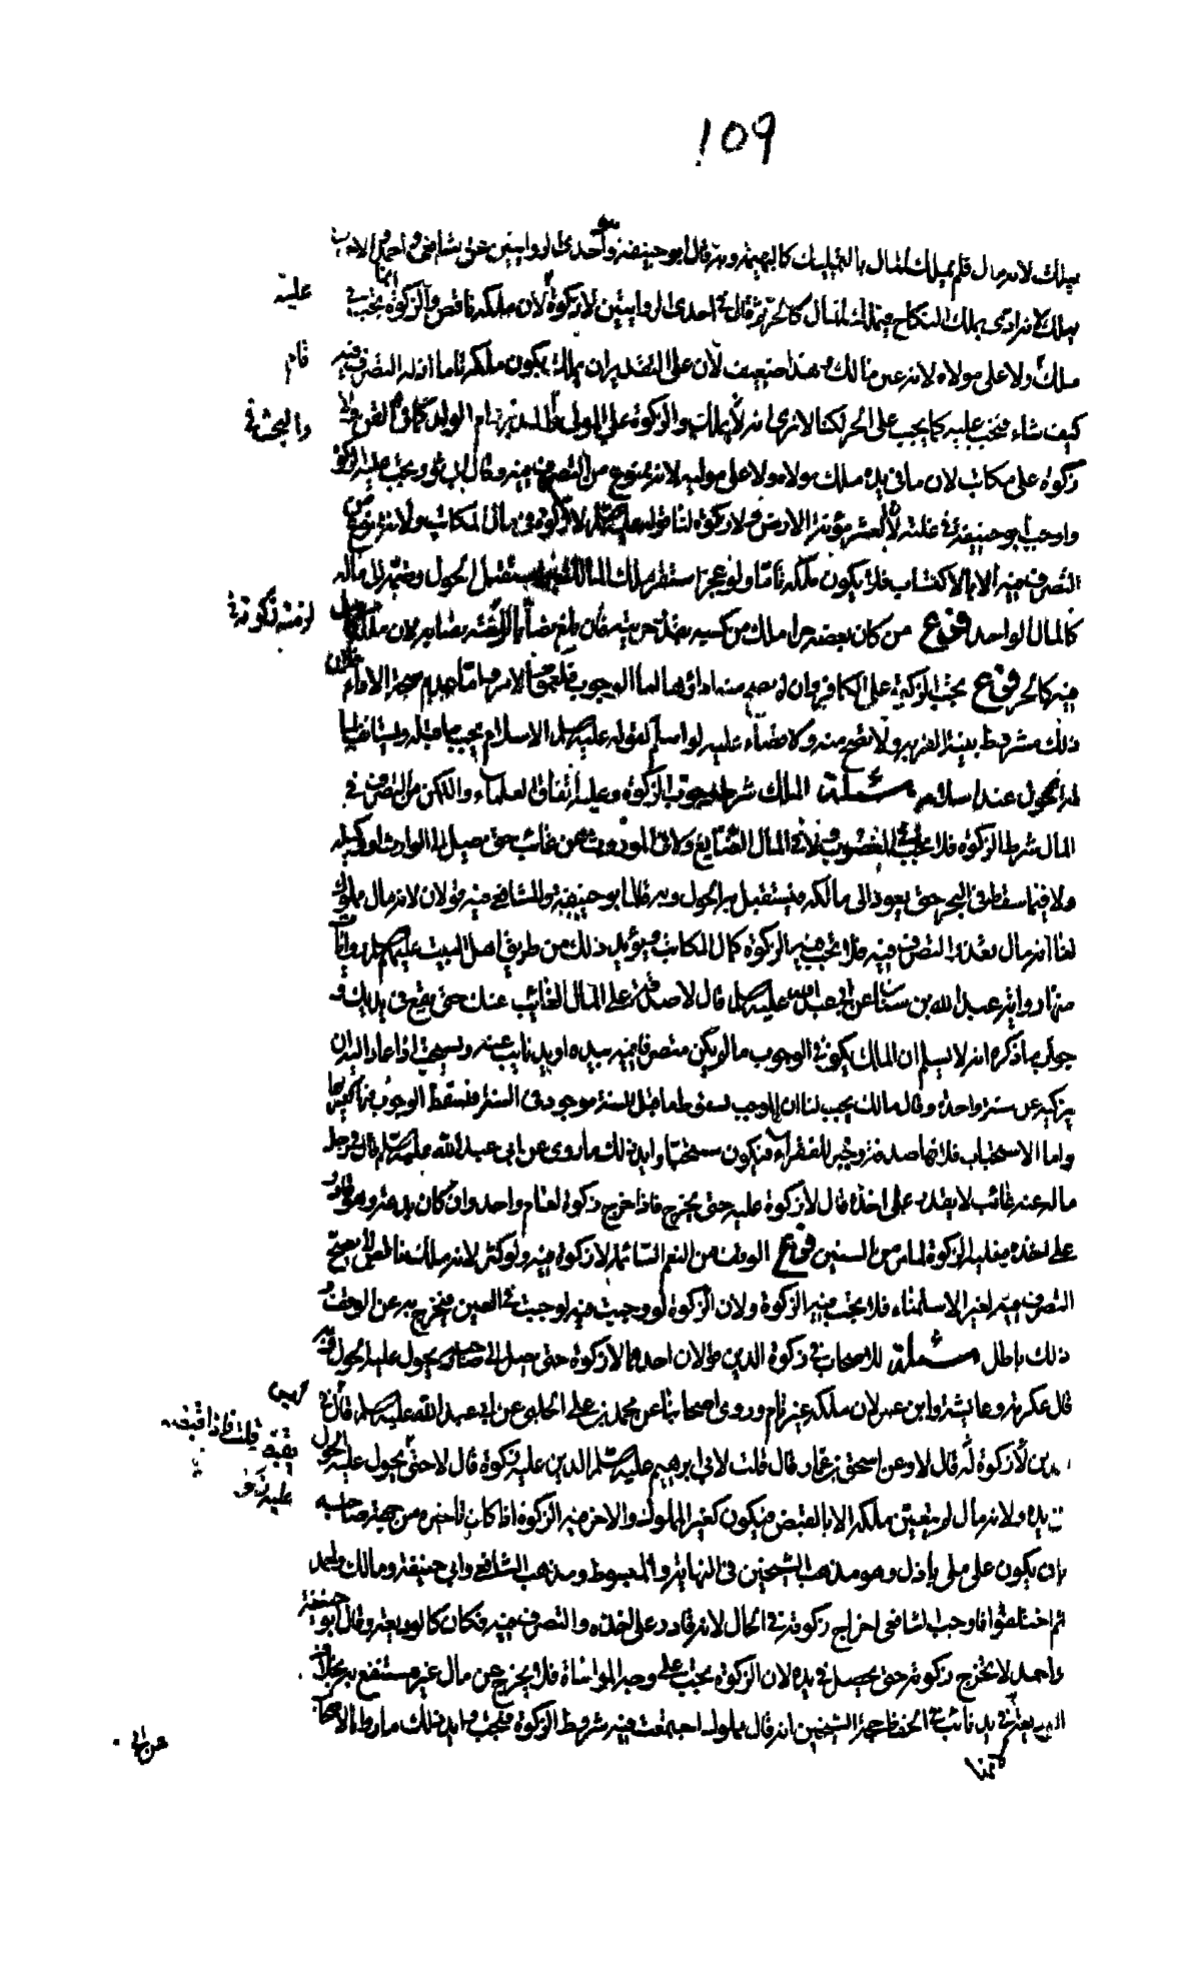 109
يملك لانه مال فلم يملك المال بالتمليك كالبهيمة وبه قال ابو حنيفة واحدى الروايتين عن الشافعي واحمد
يملك لانه ادمى يملك النكاح فيملك المال كالحر ثم قال في احدى الروايتين لا زكوة لان ملكه ناقص والزكوة انما تجب في
عليه
ملك ولا على مولاه لانه غير مالك وهذا ضعيف لان على التقدير ان يملك يكون ملكه تاما اذ له التصرف فيه
تام
كيف شاء فتجب عليه كما يجب على الحر لكنا لا نرى انه يملك والزكوة على المولى
والبحث في
زكوة على مكاتب لان ما في يده ملك مولاه ولا على مولاه لانه ممنوع من التصرف فيه وقال ابو ثور يجب عليه الزكوة
واوجب ابو حنيفة في غلته لان العشر مؤنة الارض ولا زكوة لنا قوله لا زكوة في مال المكاتب ولانه ممنوع من
التصرف فيه الا بالاكتساب فلا يكون ملكه تاما ولو عجز استقر ملك المالك يستقبل الحول وضمه الى ماله
كالمال الواحد فرع من كان بعضه حرا ملك من كسبه بقدر حريته فان بلغ نصابا لان ملكه
لزمته زكوته في
فيه كالحر فرع تجب الزكوة على الكافر وان لم يصح منه اداؤها اما الوجوب فلعموم الامر واما عدم صحة الاداء فلان
ذلك مشروط بنية القربة ولا تصح منه ولا قضاء عليه لو اسلم لقوله عليه السلام الاسلام يجب ما قبله ويستانف
لها الحول عند اسلامه مسئلة الملك شرط وجوب الزكوة وعليه اتفاق العلماء والتمكن من التصرف في
المال شرط الزكوة فلا تجب في المغصوب ولا في المال الضايع ولا في الموروث عن غائب حتى يصل الى الوارث او وكيله
ولا فيما سقط في البحر حتى يعود الى مالكه فيستقبل به الحول وبه قال ابو حنيفة وللشافعي فيه قولان لانه مال مملوك
لنا انه مال تعذر التصرف فيه فلا تجب فيه الزكوة كمال المكاتب ويؤيد ذلك من طريق اهل البيت عليهم السلام روايات
منها رواية عبد الله بن سنان عن ابي عبد الله عليه السلام قال لا صدقة على المال الغائب عنك حتى يقع في يديك و
جواب ما ذكره انه لا يسلم ان الملك يكفي في الوجوب ما لم يكن متصرفا فيه بيده او يد نايب عنه ويستحب اذا عاد اليه ان
يزكيه عن سنة واحدة وقال مالك يجب لنا ان الموجب لسقوطها قبل السنة موجود في السنة فسقط الوجوب فيها
واما الاستحباب فلانها صدقة وخير للفقراء فيكون مستحبا وايد ذلك ما روى عن ابي عبد الله عليه السلام قال في رجل
ماله عنه غائب لا يقدر على اخذه قال لا زكوة عليه حتى يخرج فاذا خرج زكوة لعام واحد وان كان يدعه وهو قادر
على اخذه فعليه الزكوة لما مر من السنين فرع الوقف من النعم السائمة لا زكوة فيه ولو كثر لانه
التصرف فيه لغير الاستنماء فلا تجب فيه الزكوة ولان الزكوة لو وجبت فيه لوجبت في العين فيخرج به عن الوقف و
ذلك باطل مسئلة للاصحاب في زكوة الدين قولان احدهما لا زكوة حتى يصل الى صاحبه ويحول عليه الحول وبه
قال عكرمة وعايشة وابن عمر لان ملكه غير تام وروى اصحابنا عن محمد بن علي الحلبي عن ابي عبد الله عليه السلام قال
ليس
الدين زكوة قال لا وعن اسحق بن عمار قال قلت لابي ابراهيم عليه السلام الدين عليه زكوة قال لا حتى
يقبضه قلت فاذا قبضه
عليه زكوة قال لا حتى يحول عليه الحول
في يده ولانه مال لم يتعين ملكه الا بالقبض فيكون كغير المملوك والاخر فيه الزكوة اذا كان تاخيره من جهة صاحبه
بان يكون على ملى باذل وهو مذهب الشيخين في النهاية والمبسوط ومذهب الشافعي وابي حنيفة ومالك واحمد
ثم اختلفوا فاوجب الشافعي اخراج زكوته في الحال لانه قادر على اخذه والتصرف فيه فكان كالوديعة وقال ابو حنيفة
واحمد لا يخرج زكوته حتى يحصل في يده لان الزكوة تجب على وجه المواساة فلا يخرج عن مال غير منتفع به
الوديعة في يد نائب في الحفظ حجة الشيخين انه قال مملوك اجتمعت فيه شروط الزكوة فتجب وايد ذلك ما رواه
عن ابي